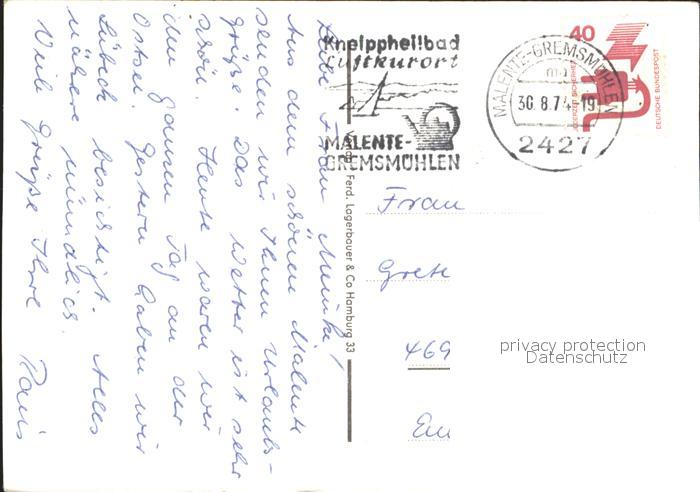 Liebe Frau
Aus dem schönen Malente
senden wir Ihnen Urlaubs-
grüße. Das Wetter ist sehr
schön. Heute waren wir
den ganzen Tag an der
Ostsee. Gestern haben wir
Lübeck besichtigt. Alles
nähere mündlich.
Viele Grüße Ihre
Kneippheilbad
Luftkurort
MALENTE-
GREMSMÜHLEN
MALENTE-GREMSMÜHLEN
30.8.74-19
2427
40
DEUTSCHE BUNDESPOST
Ferd. Lagerbauer & Co Hamburg 33
Frau
Grete
469
privacy protection
Datenschutz